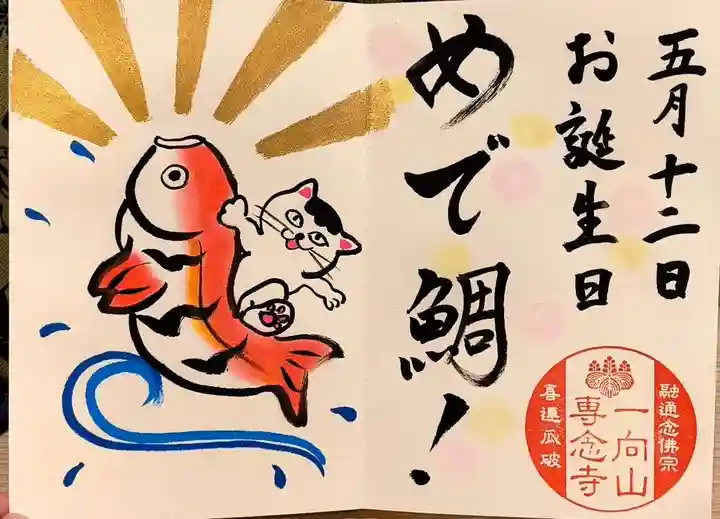 五月十二日
お誕生日
めで鯛！
融通念佛宗
一向山
専念寺
喜連瓜破